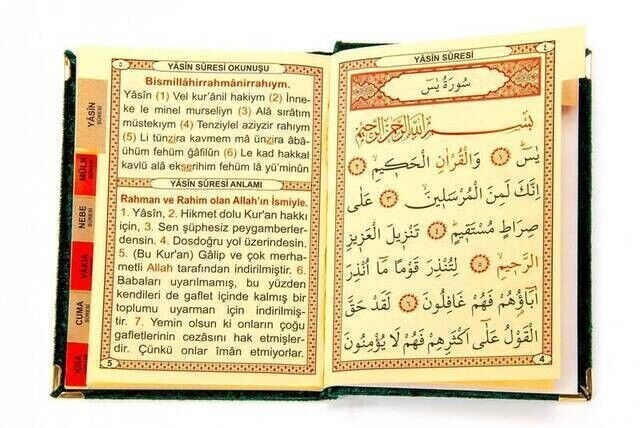 ٥
YÂSİN SÛRESİ OKUNUŞU
Bismillâhirrahmânirrahıym.
Yâsîn (1) Vel kur'ânil hakiym (2) İnne-
ke le minel murseliyn (3) Alâ sırâtım
müstekıym (4) Tenziylel aziyzir rahıym
(5) Li tünzira kavmem mâ ünzira âbâ-
ühüm fehüm ğâfilûn (6) Le kad hakkal
kavlü alâ ekserihim fehüm lâ yü'minûn
YÂSİN SÛRESİ ANLAMI
Rahman ve Rahim olan Allah'ın İsmiyle.
1. Yâsîn, 2. Hikmet dolu Kur'an hakkı
için, 3. Sen şüphesiz peygamberler-
densin. 4. Dosdoğru yol üzerindesin.
5. (Bu Kur'an) Gâlip ve çok merha-
metli Allah tarafından indirilmiştir. 6.
Babaları uyarılmamış, bu yüzden
kendileri de gaflet içinde kalmış bir
toplumu uyarman için indirilmiş-
tir. 7. Yemin olsun ki onların çoğu
gafletlerinin cezasını hak etmişler-
dir. Çünkü onlar îmân etmiyorlar.
5
YÂSİN SÛRESİ
MÜLK SÛRESİ
NEBE SÛRESİ
VAKIA
CUMA SÛRESİ
YÂSİN SÛRESİ
٤
سُورَةُ يٰسٓ
بِسْمِ اللّٰهِ الرَّحْمٰنِ الرَّحِيمِ
يٰسٓ ﴿١﴾ وَالْقُرْاٰنِ الْحَكِيمِ ﴿٢﴾
اِنَّكَ لَمِنَ الْمُرْسَلِينَ ﴿٣﴾ عَلٰى
صِرَاطٍ مُسْتَقِيمٍ ﴿٤﴾ تَنْزِيلَ الْعَزِيزِ
الرَّحِيمِ ﴿٥﴾ لِتُنْذِرَ قَوْمًا مَٓا اُنْذِرَ
اٰبَٓاؤُهُمْ فَهُمْ غَافِلُونَ ﴿٦﴾ لَقَدْ حَقَّ
الْقَوْلُ عَلٰٓى اَكْثَرِهِمْ فَهُمْ لَا يُؤْمِنُونَ
4